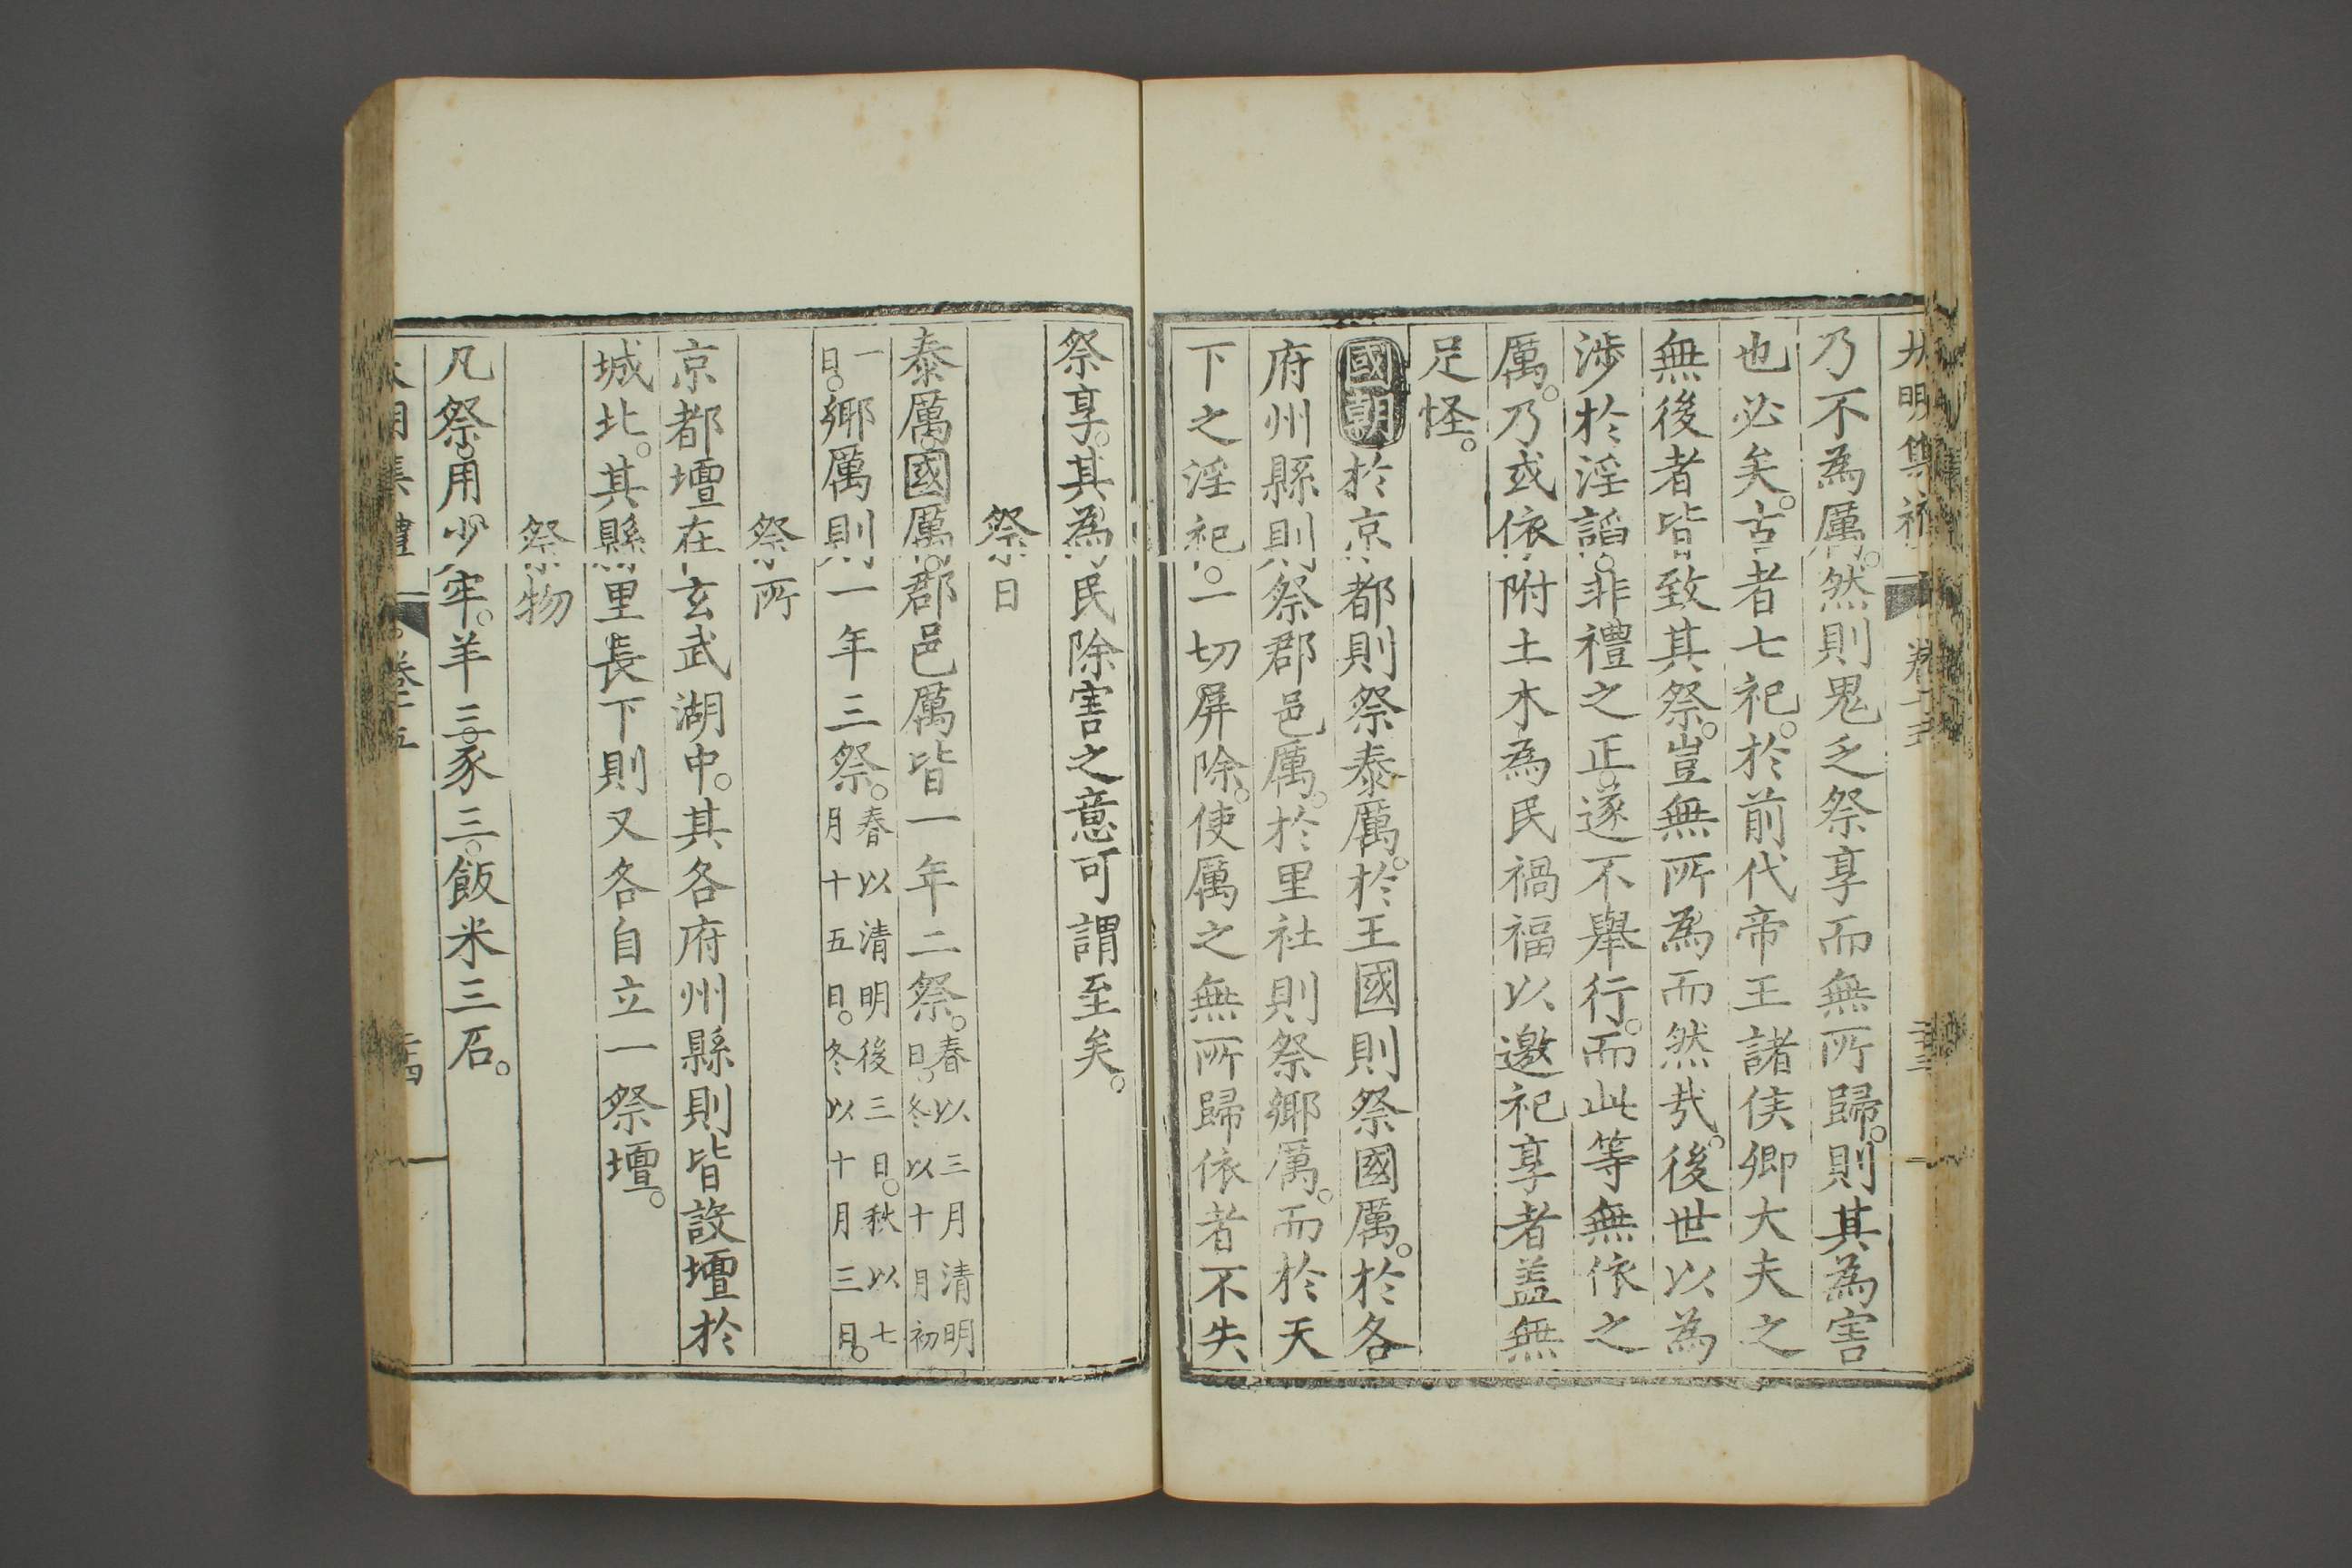 大明集禮 卷十五 二十三
乃不為厲。然則鬼乏祭享而無所歸。則其為害
也必矣。古者七祀。於前代帝王諸侯卿大夫之
無後者皆致其祭。豈無所為而然㢤。後世以為
涉於淫謟。非禮之正。遂不舉行。而此等無依之
厲。乃或依附土木為民禍福以邀祀享者盖無
足怪。
國朝於京都則祭泰厲。於王國則祭國厲。於各
府州縣則祭郡邑厲。於里社則祭鄉厲。而於天
下之淫祀。一切屏除。使厲之無所歸依者不失
祭享。其為民除害之意可謂至矣。
祭日
泰厲。國厲。郡邑厲皆一年二祭。春以三月清明日。冬以十月初
一日。鄉厲則一年三祭。春以清明後三日。秋以七月十五日。冬以十月三日。
祭所
京都壇在玄武湖中。其各府州縣則皆設壇於
城北。其縣里長下則又各自立一祭壇。
祭物
凡祭。用少牢。羊三。豕三。飯米三石。
大明集禮 卷十五 二十四